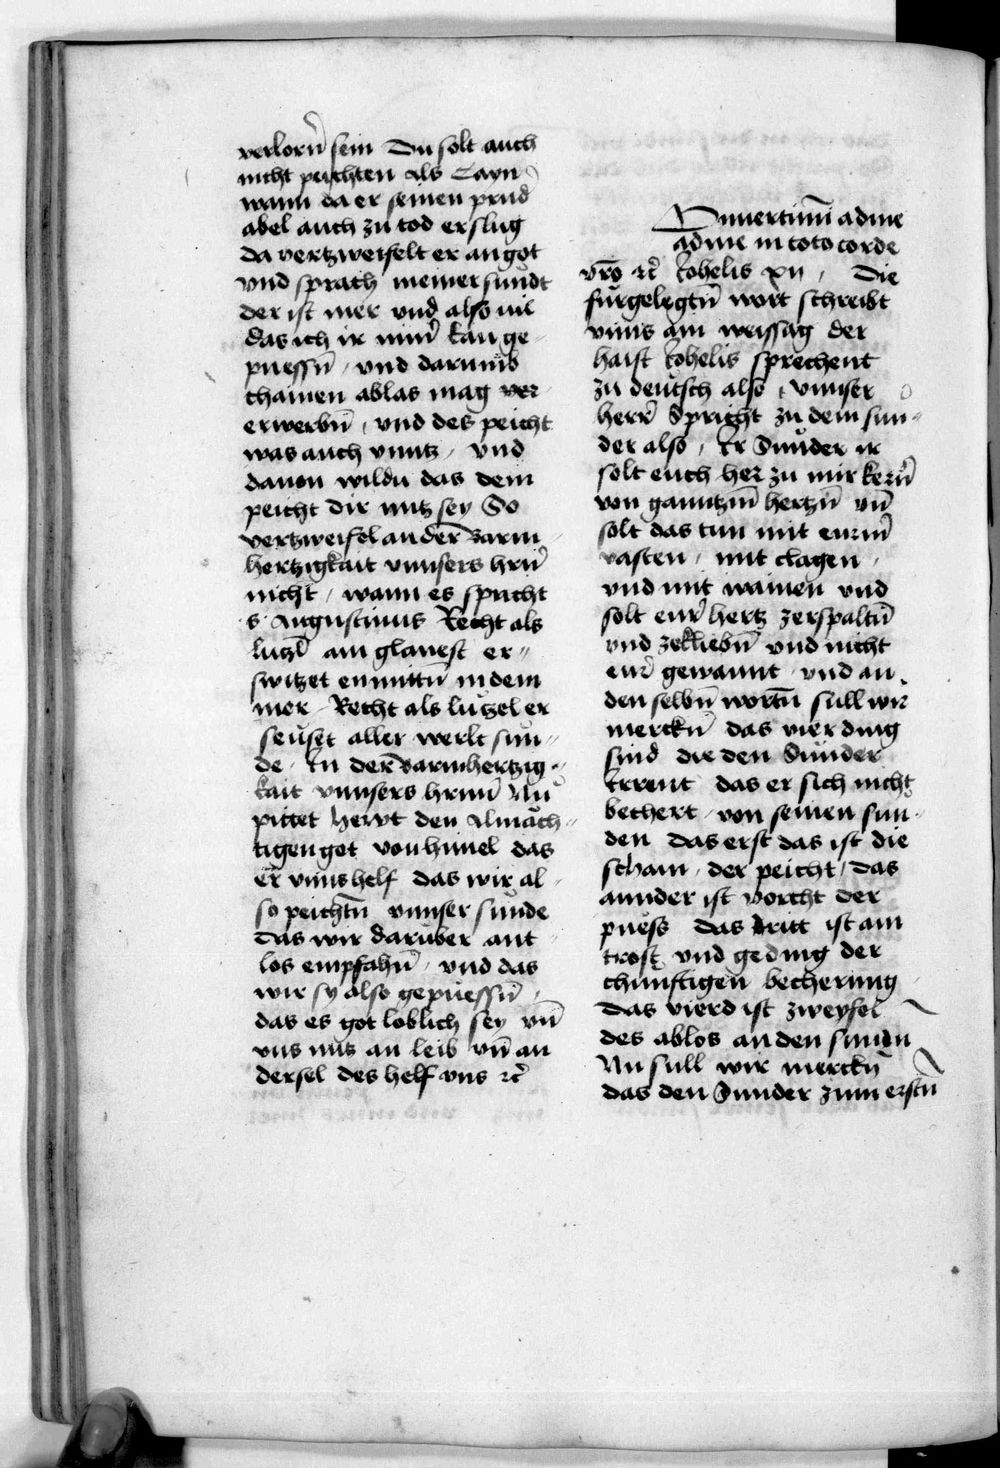 verlorñ sein Du solt auch
nicht peichten als Cayn
wann da er seinen prud̃
abel auch zu tod erslug
da vertzweifelt er an got
vnd sprach meiner sund
der ist mer vnd also vil
das ich ir nim̃ kan ge-
puessñ / vnd darumb
chainen ablas mag ver-
erwerbñ / vnd des peicht
was auch vnutz / vnd
dauon wildu das dein
peicht dir nutz sey So
vertzweifel an der barm-
hertzigkait vnnsers hrñ
nicht / wann es spricht
s Augustinus Recht als
lutzl ain glanest er=
switzet enmittñ in dem
mer / Recht als lutzel er
seuset aller werlt sun=
de / In der barmhertzig=
kait vnnsers hrnn Nu
pittet hewt den Almach=
tigen got von himel das
er vnns helf das wir al-
so peichtñ vnnser sunde
das wir daruber ant-
los empfahñ / vnd das
wir sy also gepuessñ /
das es got loblich sey vñ
vns nutz an leib vñ an
der sel des helf vns ꝛc̃
Conuertimĩ ad me
ad me in toto corde
vr̃o ꝛc̃ Johelis xij / Die
furgelegtñ wort schreibt
vnns ain weissag der
haist Johelis sprechent
zu deutsch also / vnnser
herr̃ Spricht zu dem sun=
der also / Ir Sunder ir
solt euch her zu mir kerñ
von ganntzm̃ hertzñ vñ
solt das tun mit eurm̃
vasten / mit clagen /
vnd mit wainen vnd
solt eur̃ hertz zerspaltñ
vnd zekliebñ vnd nicht
eur̃ gewannt / vnd an
den selbñ wortñ sull wir
merckñ das vier ding
sind die den Sunder
Irrent das er sich nicht
bechert / von seinen sun-
den das erst das ist die
scham / der peicht / das
annder ist vorcht der
puess das dritt ist ain
trost vnd geding der
chunftigen becherung /
das vierd ist zweyfel
des ablos an den sundñ
Nu sull wir merckñ
das den Sunder zum erstñ